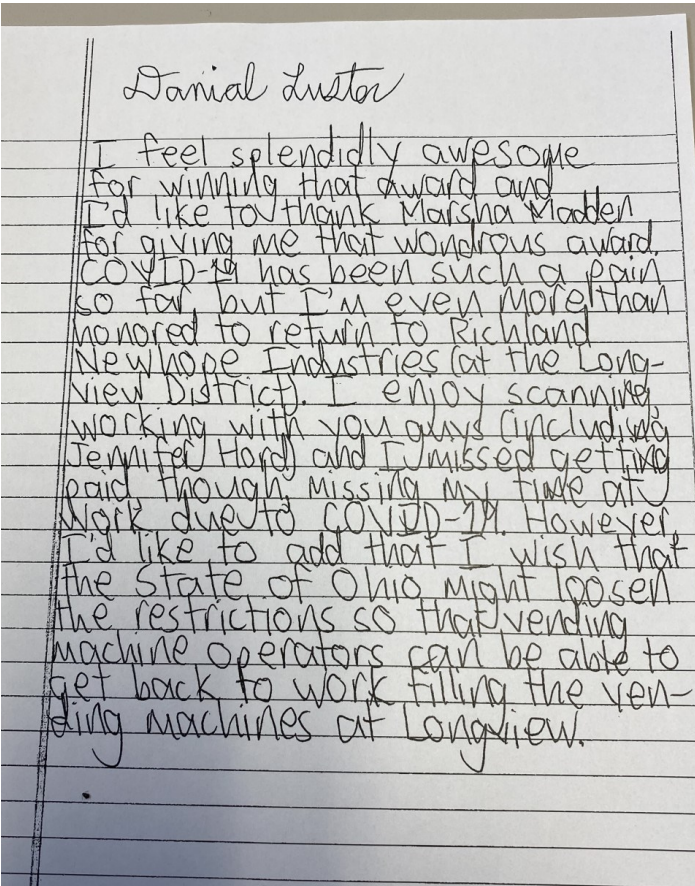 Danial Luster
I feel splendidly awesome
for winning that award and
I'd like to thank Marsha Madden
for giving me that wondrous award.
COVID-19 has been such a pain
so far but I'm even more than
honored to return to Richland
Newhope Industries (at the Long-
view District). I enjoy scanning,
working with you guys (including
Jennifer Hord) and I missed getting
paid though, missing my time at
work due to COVID-19. However,
I'd like to add that I wish that
the State of Ohio might loosen
the restrictions so that vending
machine operators can be able to
get back to work filling the ven-
ding machines at Longview.